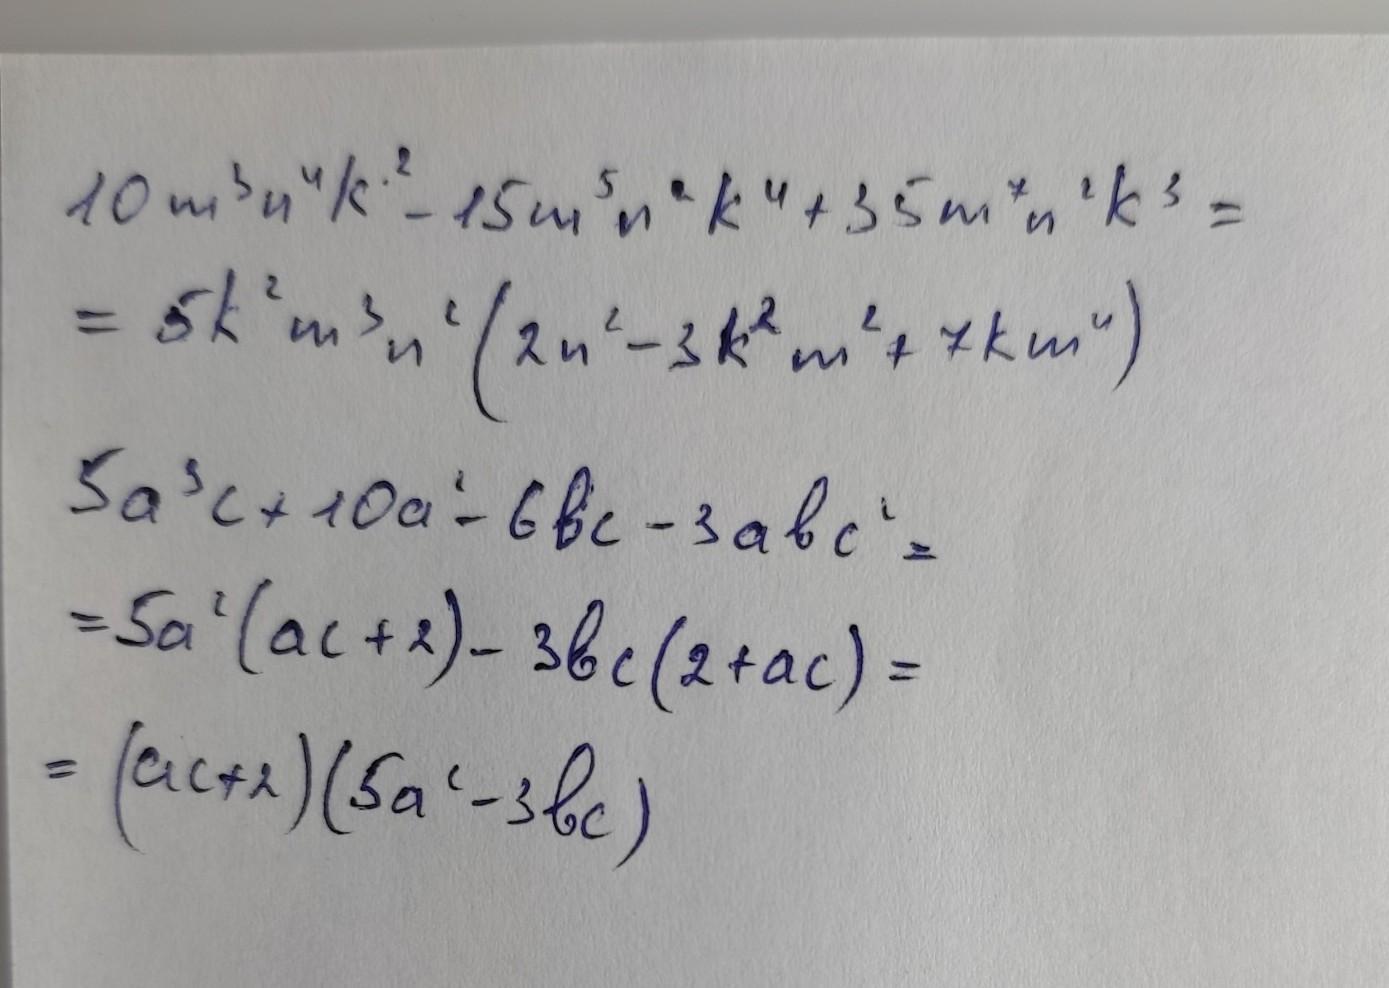 10m³n⁴k² - 15m⁵n²k⁴ + 35m⁷n²k³ =
= 5k²m³n²(2n² - 3k²m² + 7km⁴)
5a³c + 10a² - 6bc - 3abc² =
= 5a²(ac + 2) - 3bc(2 + ac) =
= (ac + 2)(5a² - 3bc)